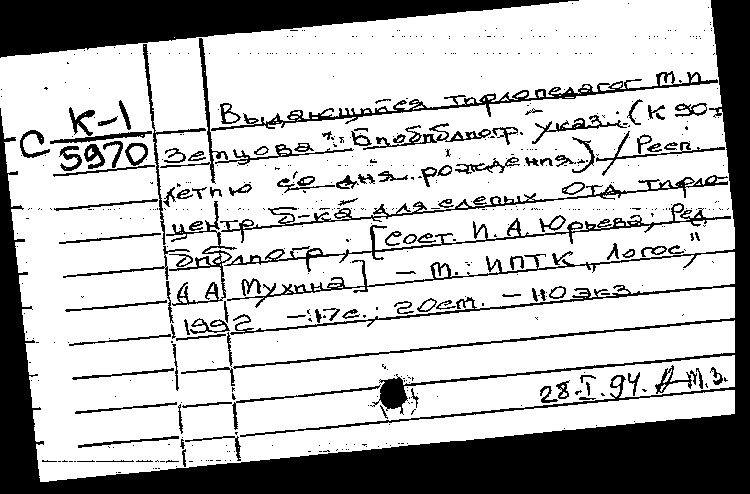 С К-1
5970
Выдающийся тифлопедагог М.И.
Земцова : Библиогр. указ. (К 90-
летию со дня рождения) / Респ.
центр. б-ка для слепых. Отд. тифло-
библиогр.; [Сост. И. А. Юрьева; Ред.
А. А. Мухина] – М.: ИПТК „Логос",
1992. – 17 с.; 20 см. – 110 экз.
28.I.94. М.З.